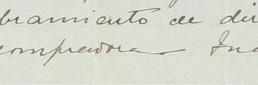 bramiento de dir
compradora Ind